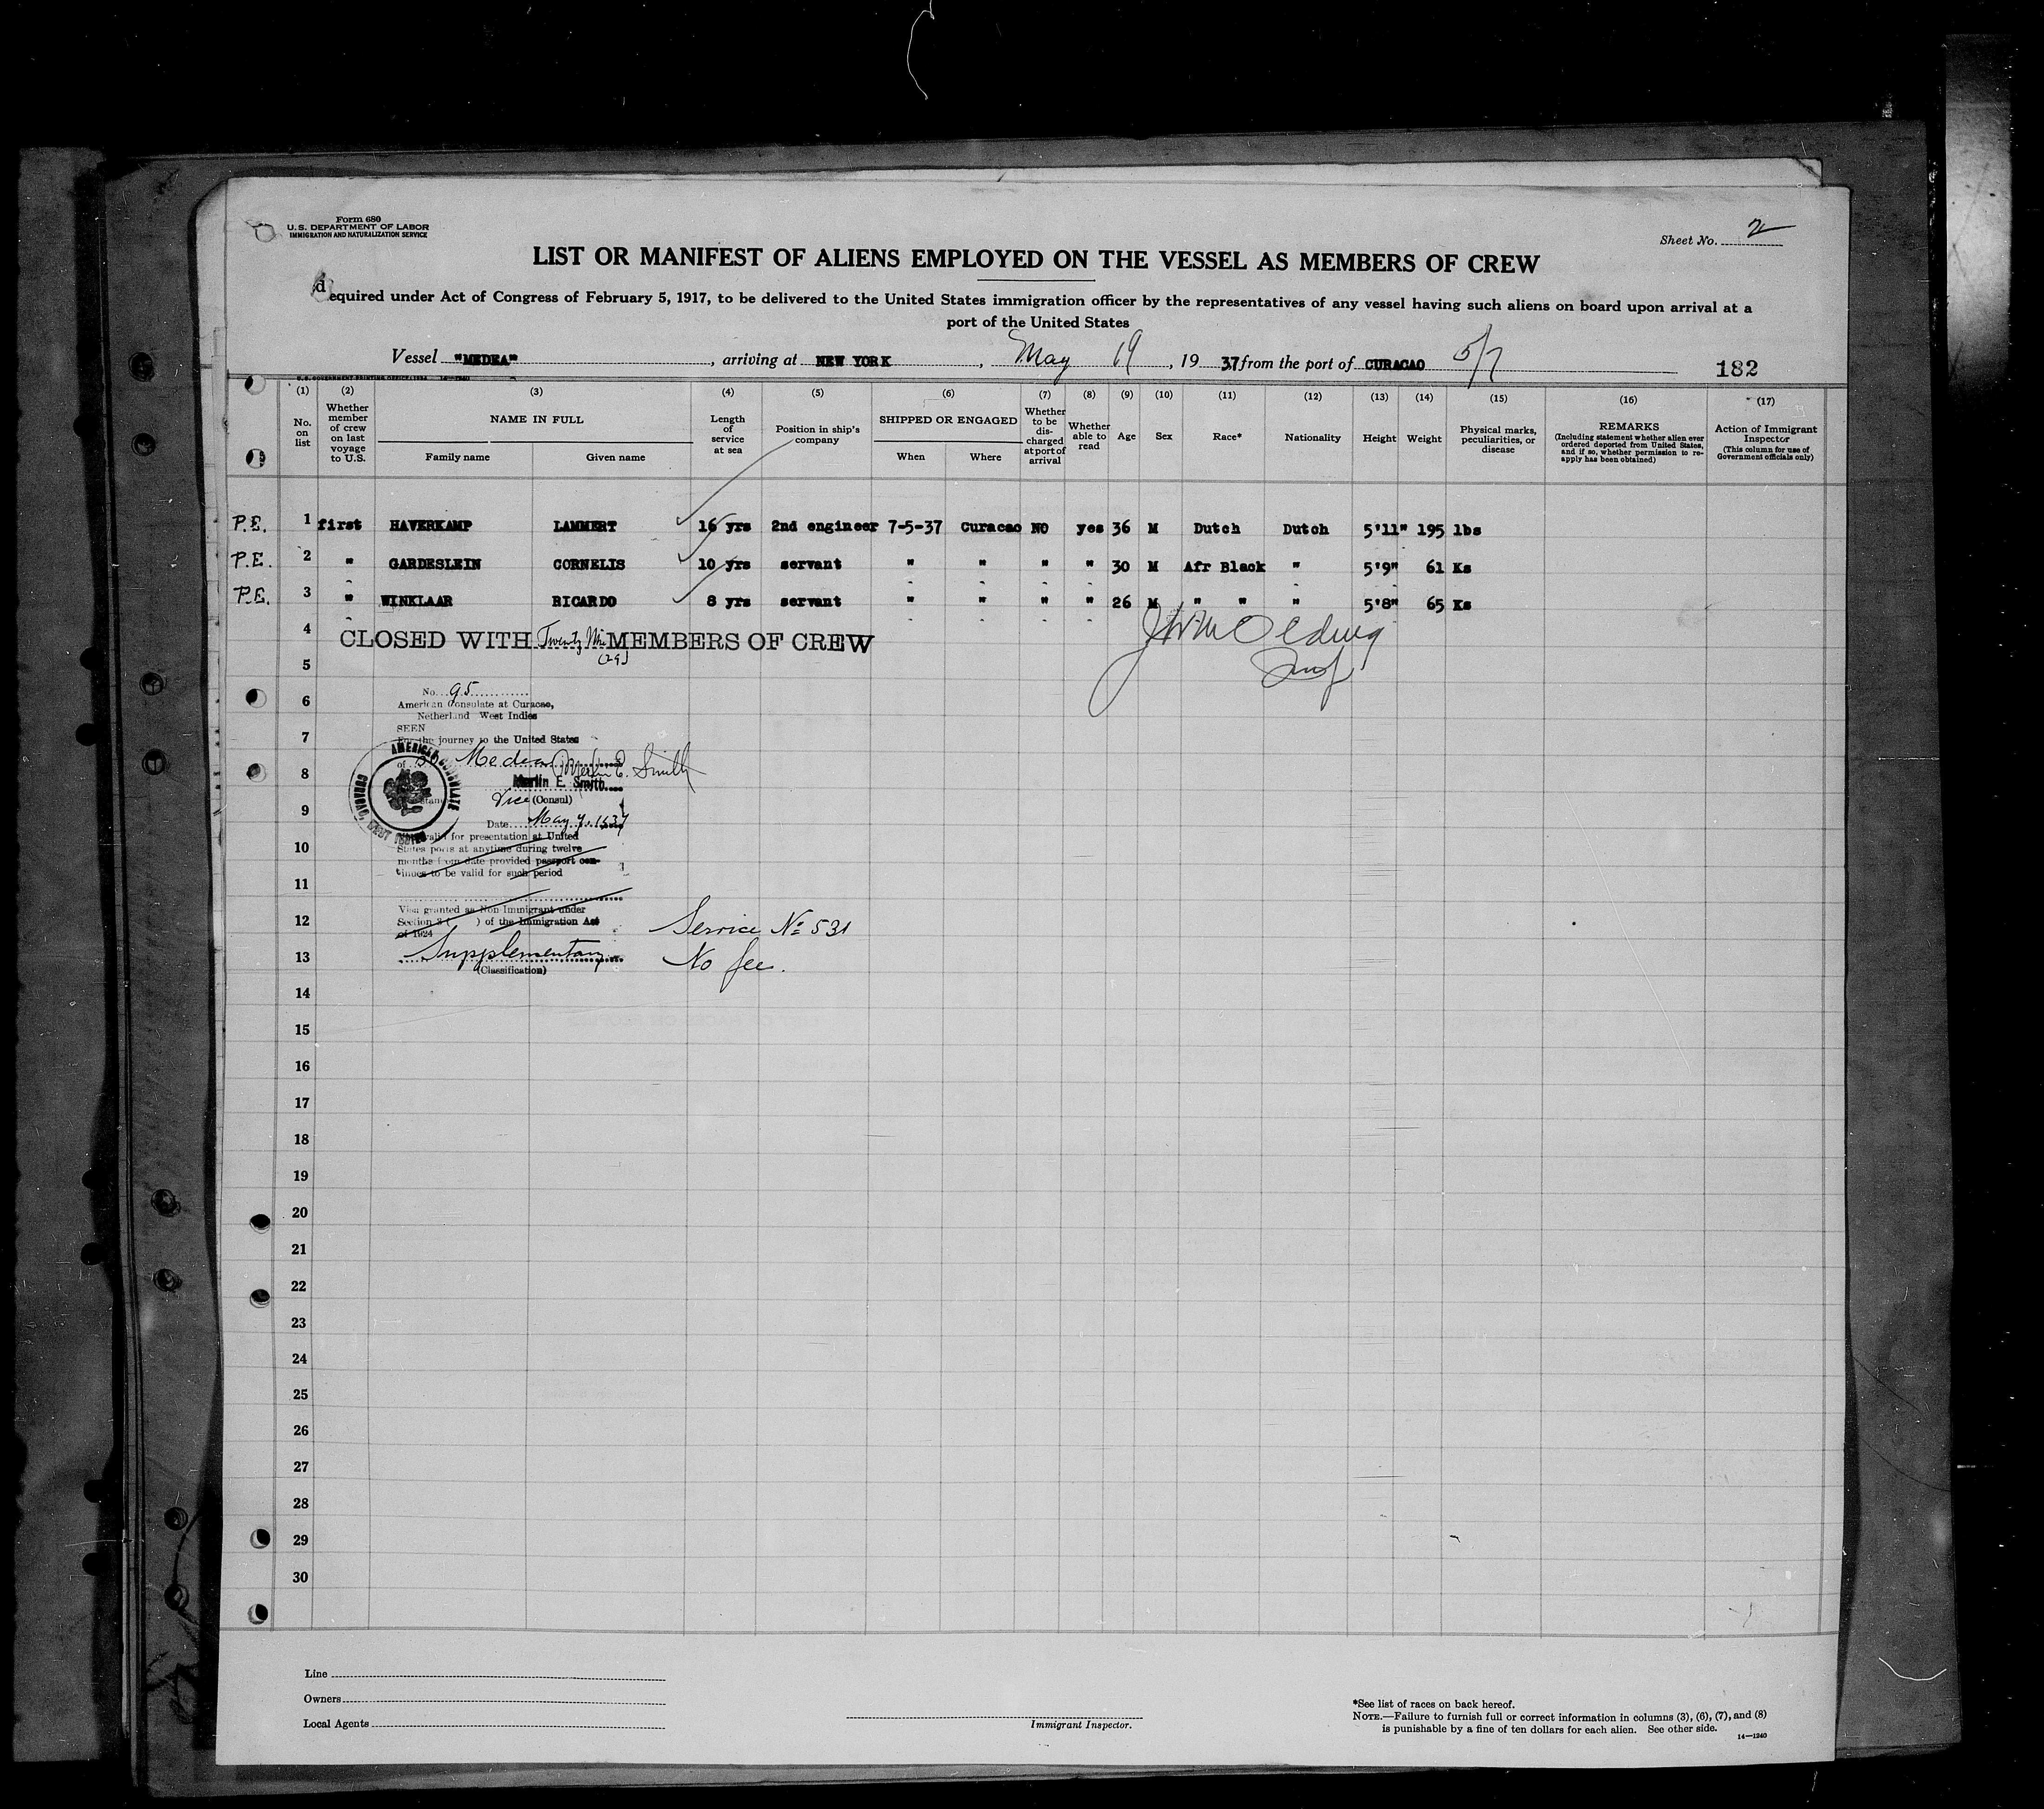 Form 680
U. S. DEPARTMENT OF LABOR
IMMIGRATION AND NATURALIZATION SERVICE
Sheet No. 2
LIST OR MANIFEST OF ALIENS EMPLOYED ON THE VESSEL AS MEMBERS OF CREW
equired under Act of Congress of February 5, 1917, to be delivered to the United States immigration officer by the representatives of any vessel having such aliens on board upon arrival at a
port of the United States
Vessel "MEDEA", arriving at NEW YORK, May 19, 1937 from the port of CURACAO 5/7
182
(1) (2) (3) (4) (5) (6) (7) (8) (9) (10) (11) (12) (13) (14) (15) (16) (17)
No. on list
Whether member of crew on last voyage to U.S.
NAME IN FULL
Family name Given name
Length of service at sea
Position in ship's company
SHIPPED OR ENGAGED
When Where
Whether to be discharged at port of arrival
Whether able to read
Age
Sex
Race*
Nationality
Height
Weight
Physical marks, peculiarities, or disease
REMARKS
(Including statement whether alien ever ordered deported from United States, and if so, whether permission to reapply has been obtained)
Action of Immigrant Inspector
(This column for use of Government officials only)
P.E. 1 first HAVERKAMP LAMMERT 16 yrs 2nd engineer 7-5-37 Curacao NO yes 36 M Dutch Dutch 5'11" 195 lbs
P.E. 2 " GARDESLEIN CORNELIS 10 yrs servant " " " " 30 M Afr Black " 5'9" 61 Ks
P.E. 3 " WINKLAAR RICARDO 8 yrs servant " " " " 26 M " " " 5'8" 65 Ks
4 CLOSED WITH Twenty Nine MEMBERS OF CREW
(29)
5
6
7
8
9
10
11
12
13
14
15
16
17
18
19
20
21
22
23
24
25
26
27
28
29
30
No. 95
American Consulate at Curacao,
Netherland West Indies
SEEN
For the journey to the United States
of SS Medea Merlin E. Smith
Merlin E. Smith
Vice (Consul)
Date May 7, 1937
valid for presentation at United
States ports at anytime during twelve
months from date provided passport con-
tinues to be valid for such period
Visa granted as Non Immigrant under
Section 3 ( ) of the Immigration Act
of 1924
Supplementary
(Classification)
AMERICAN CONSULATE
CURACAO, WEST INDIES
Service No 531
No fee.
Line
Owners
Local Agents
Immigrant Inspector.
*See list of races on back hereof.
NOTE.—Failure to furnish full or correct information in columns (3), (6), (7), and (8)
is punishable by a fine of ten dollars for each alien. See other side.
14—1240